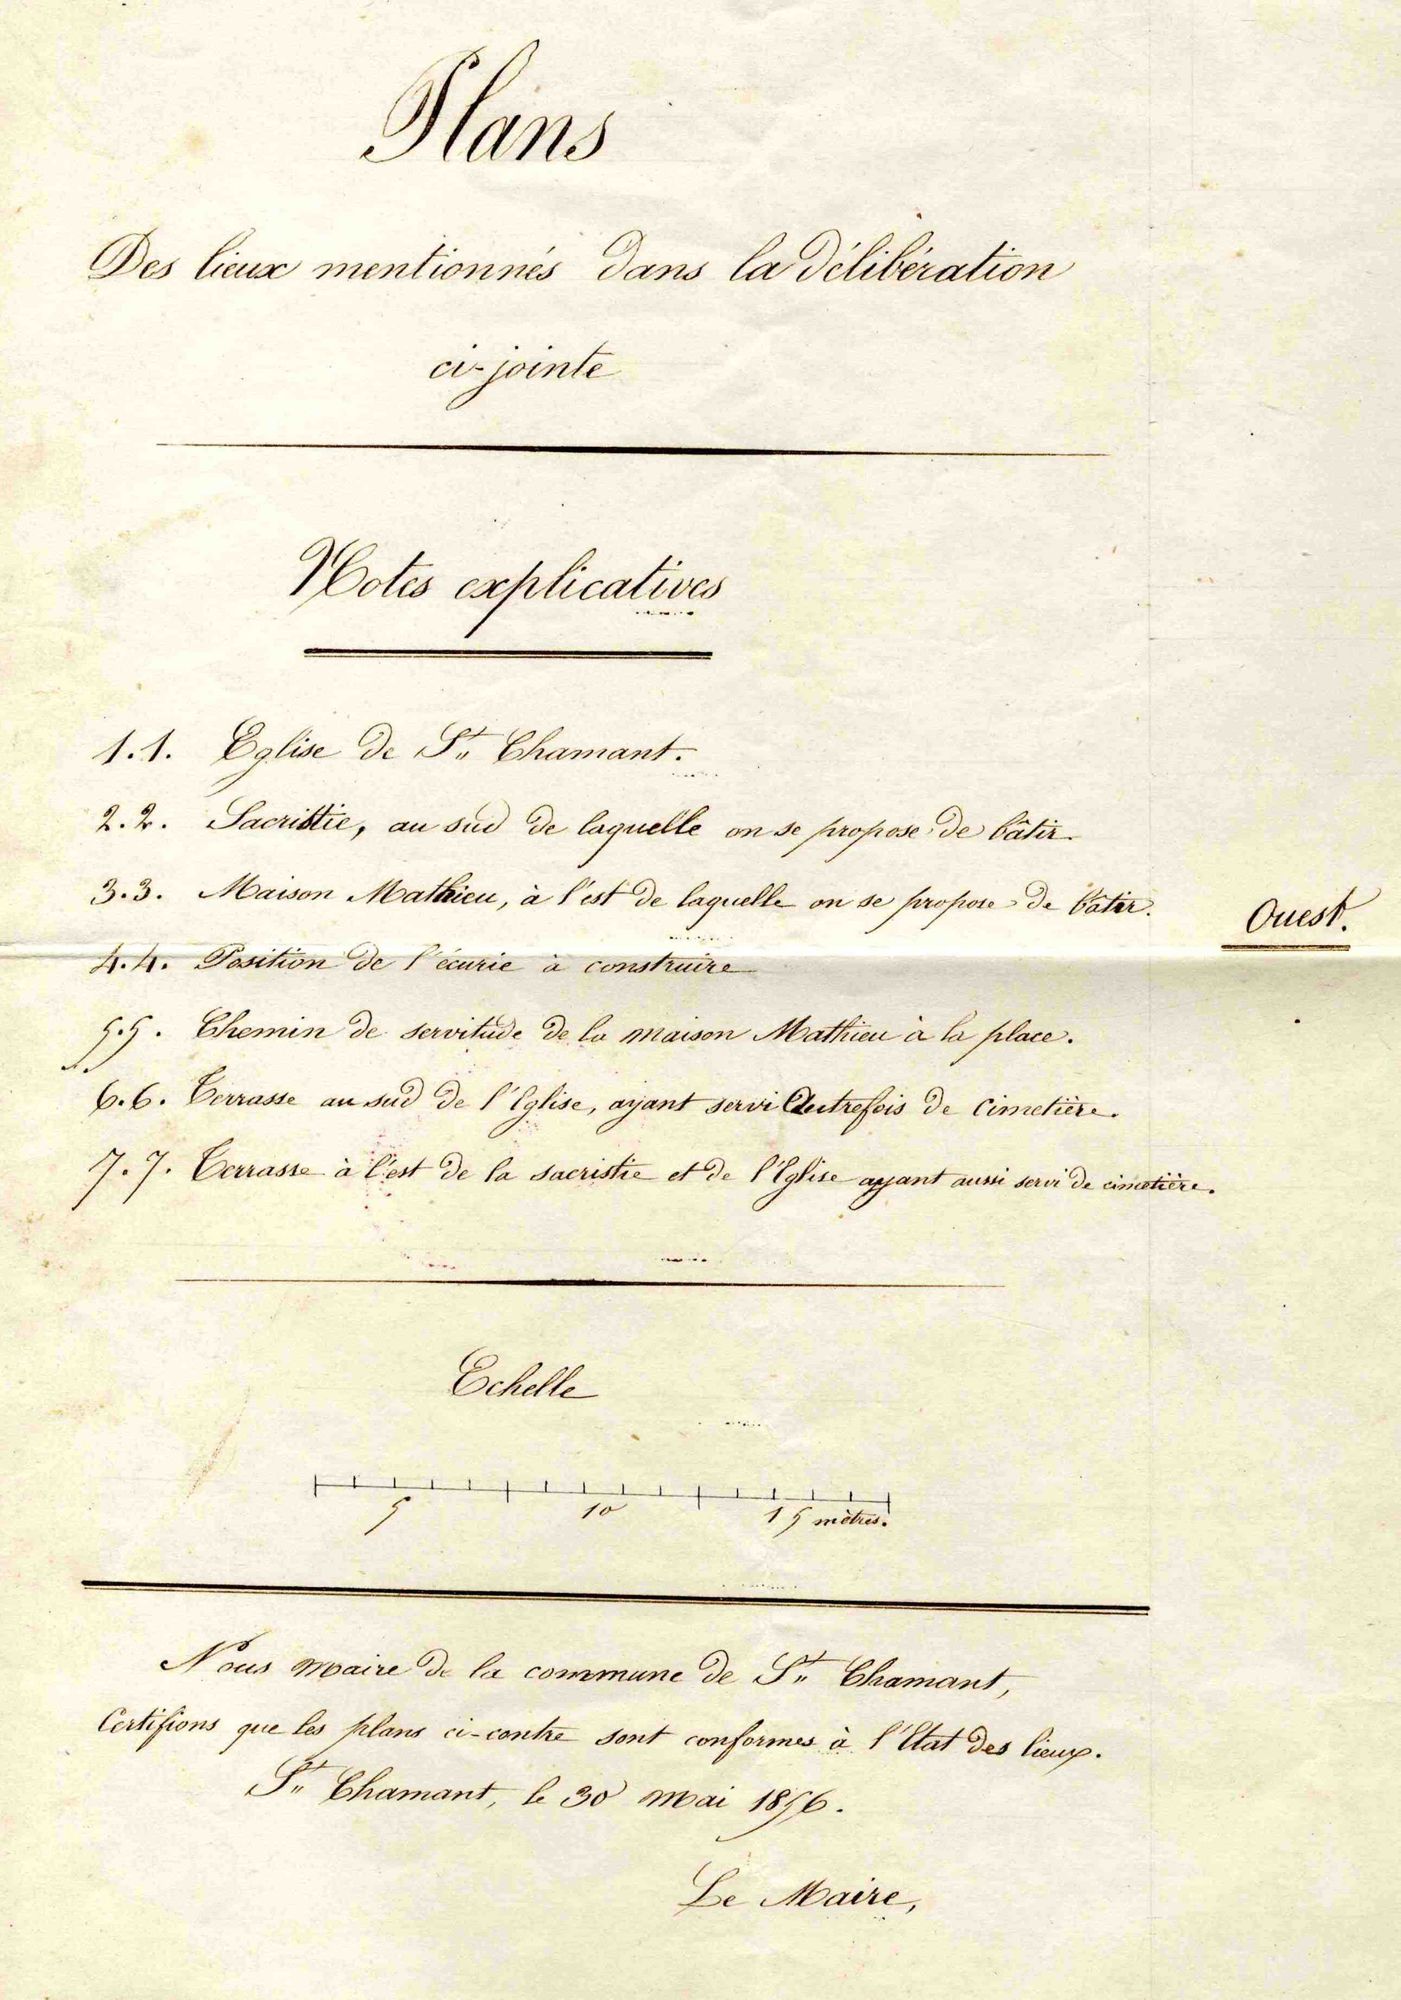 Plans
Des lieux mentionnés dans la délibération
ci-jointe
Notes explicatives
1.1. Eglise de St. Chamant.
2.2. Sacristie, au sud de laquelle on se propose de bâtir.
3.3. Maison Mathieu, à l'est de laquelle on se propose de bâtir.
Ouest.
4.4. Position de l'écurie à construire
5.5. Chemin de servitude de la maison Mathieu à la place.
6.6. Terrasse au sud de l'Eglise, ayant servi Autrefois de Cimetière.
7.7. Terrasse à l'est de la sacristie et de l'Eglise ayant aussi servi de cimetière.
Echelle
5 10 15 mètres.
Nous maire de la commune de St. Chamant,
Certifions que les plans ci-contre sont conformes à l'Etat des lieux.
St. Chamant, le 30 Mai 1856.
Le Maire,